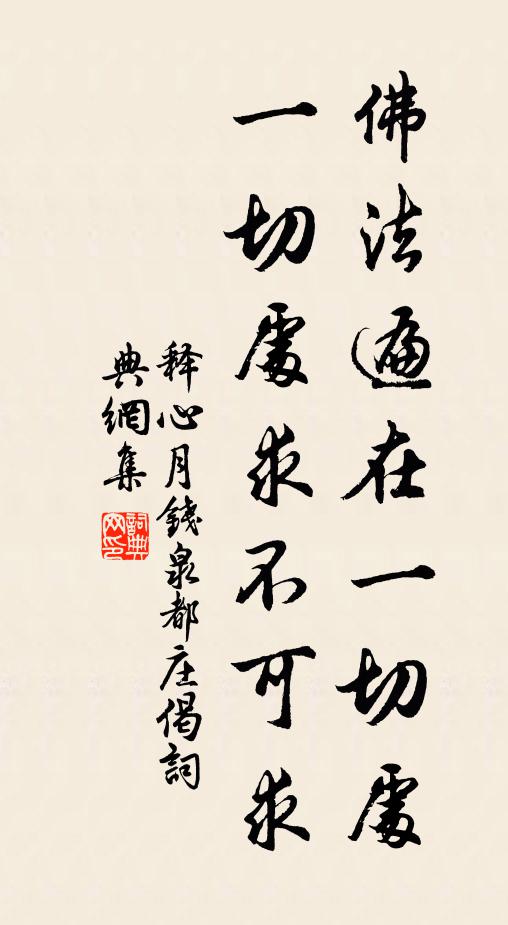 佛法遍在一切處
一切處求不可求
释心月錢泉都庄偈詞
典網集
詞典網印